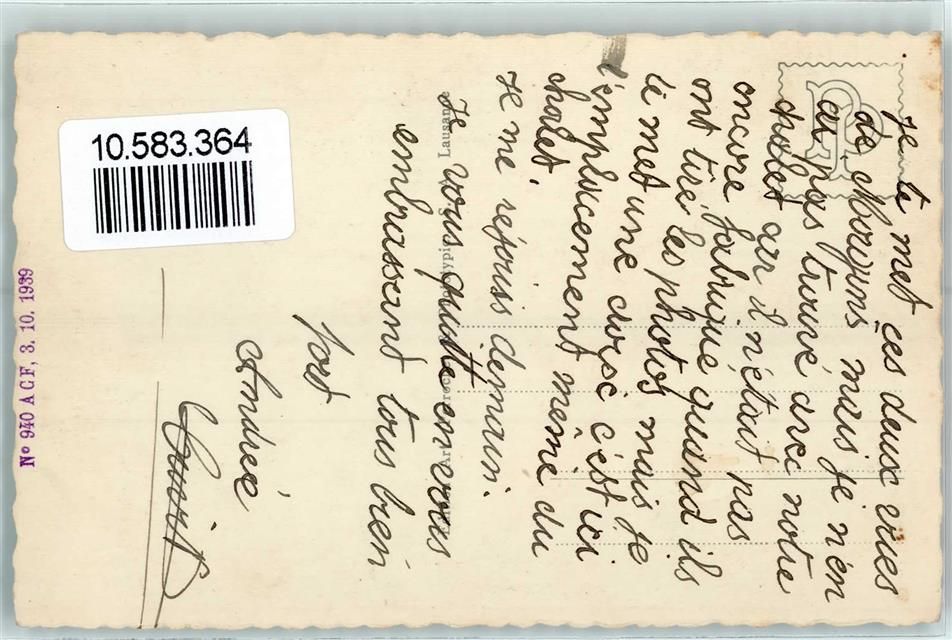 10.583.364
Nº 940 A C F, 3. 10. 1939
Lausanne
Je te met ces deux vues
de Morgins mais je n'en
ai pas trouvé avec notre
chalet car il n'était pas
encore fabriqué quand ils
ont tiré les photos mais je
te met une
c'est ici
l'emplacement même du
chalet.
Je me réjouis demain.
Je vous quitte en vous
embrassant tous bien
fort
Andrée